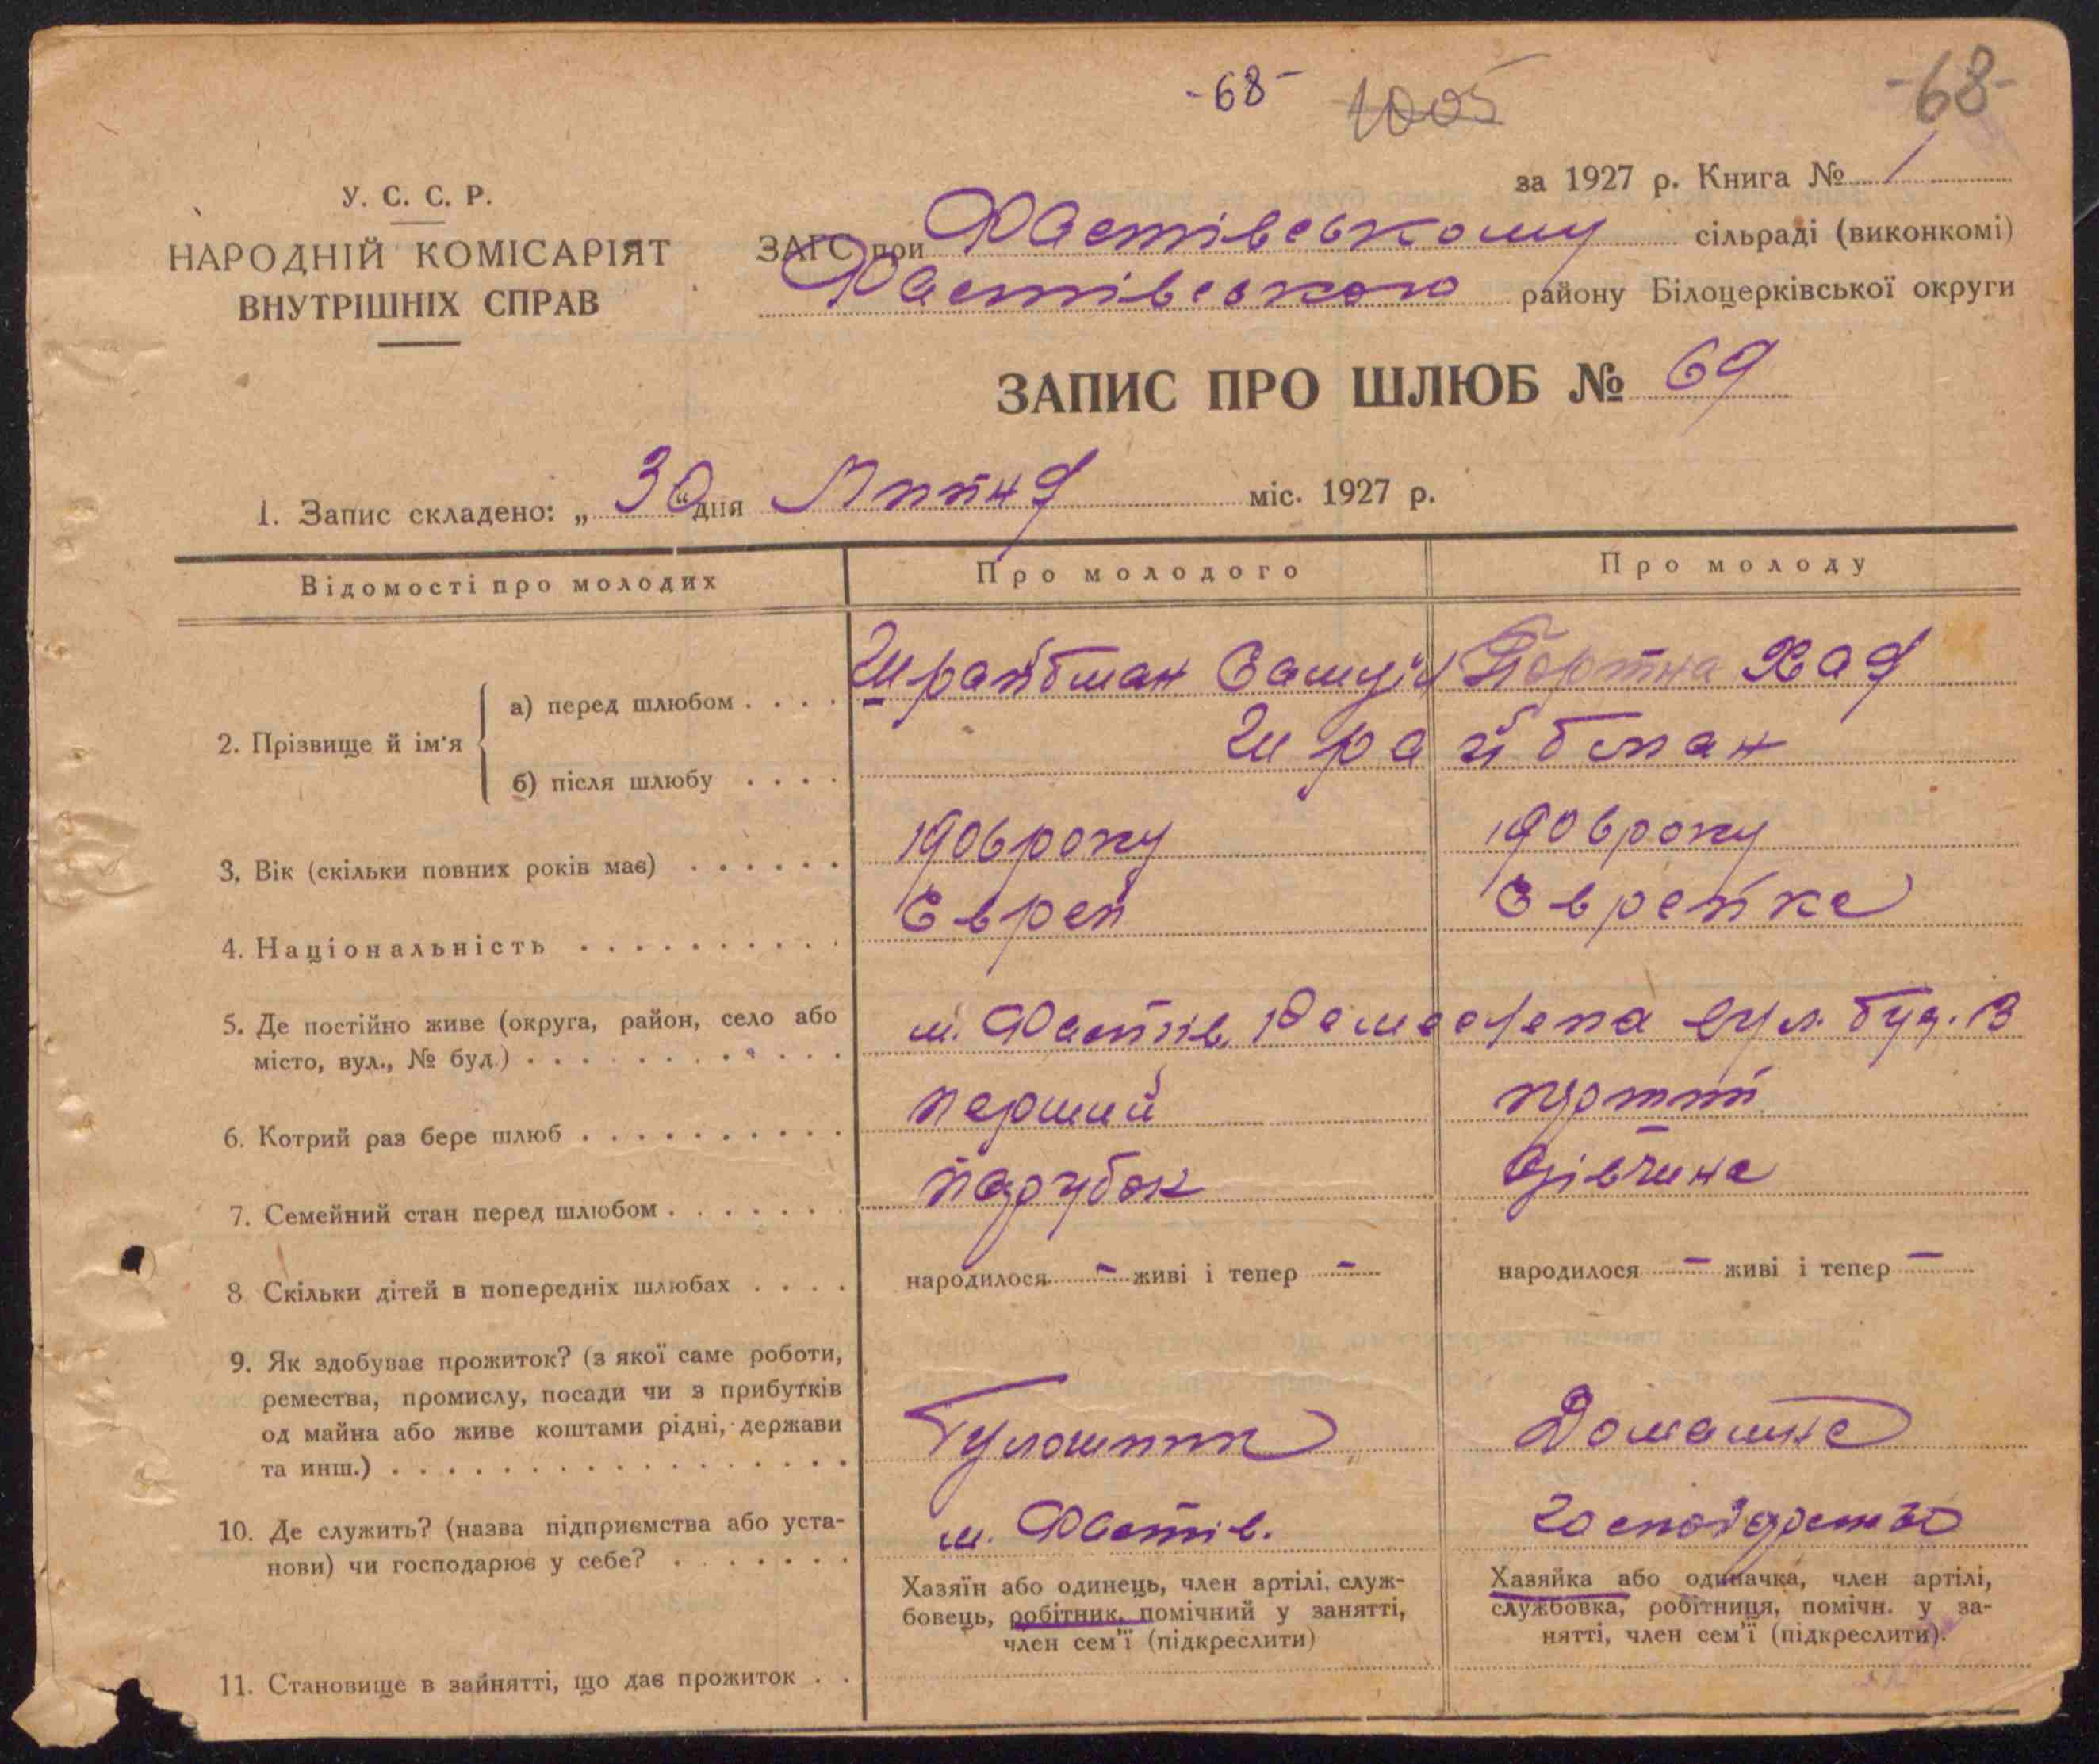 -68- 1005 -68-
за 1927 р. Книга № 1
У. С. С. Р.
НАРОДНІЙ КОМІСАРІЯТ
ВНУТРІШНІХ СПРАВ
ЗАГС при Фастівському сільраді (виконкомі)
Фастівського району Білоцерківської округи
ЗАПИС ПРО ШЛЮБ № 69
1. Запис складено: „ 30 “ дня Липня міс. 1927 р.
Відомості про молодих Про молодого Про молоду
2. Прізвище й ім'я
а) перед шлюбом . . . . Шрайбман Самуїл Портна Хая
б) після шлюбу . . . . Шрайбман
3. Вік (скільки повних років має) . . . . . . 1906 року 1906 року
4. Національність . . . . . . . . . . Еврей Еврейка
5. Де постійно живе (округа, район, село або
місто, вул., № буд.) . . . . . . . . . . . м. Фастів вул. буд. 13
6. Котрий раз бере шлюб . . . . . . . . . . перший
7. Семейний стан перед шлюбом . . . . . . . парубок дівчина
8. Скільки дітей в попередніх шлюбах . . . . народилося - живі і тепер - народилося - живі і тепер -
9. Як здобуває прожиток? (з якої саме роботи,
ремества, промислу, посади чи з прибутків
од майна або живе коштами рідні, держави
та инш.) . . . . . . . . . . . . . . . . . . Домашнє
10. Де служить? (назва підприємства або уста-
нови) чи господарює у себе? . . . . . . . м. Фастів.
Хазяїн або одинець, член артілі, служ-
бовець, робітник, помічний у занятті,
член сем'ї (підкреслити)
Хазяйка або одиначка, член артілі,
службовка, робітниця, помічн. у за-
нятті, член сем'ї (підкреслити).
11. Становище в зайнятті, що дає прожиток . .